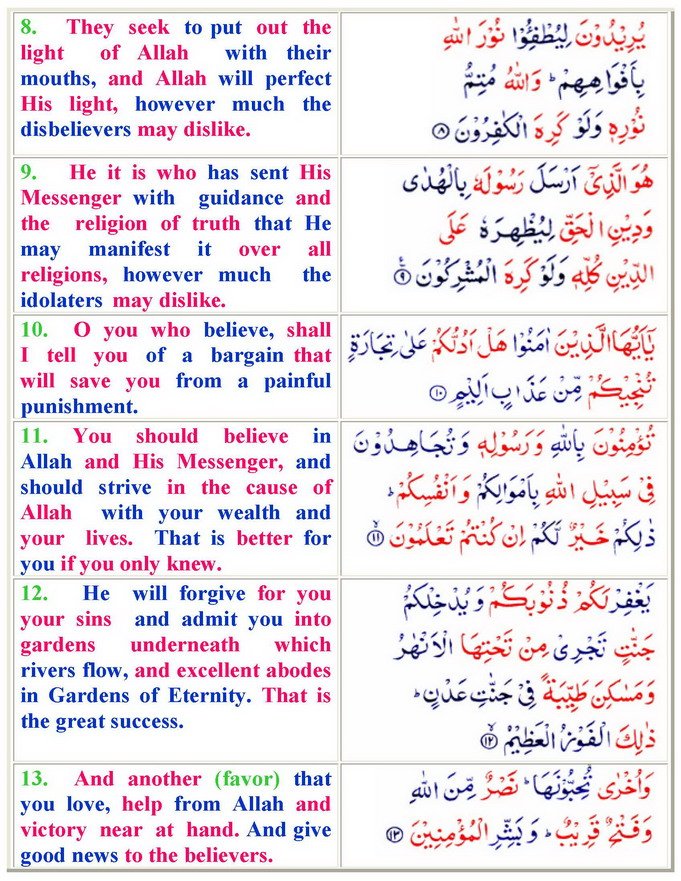 8. They seek to put out the
light of Allah with their
mouths, and Allah will perfect
His light, however much the
disbelievers may dislike.
يُرِيْدُوْنَ لِيُطْفِـُٔوْا نُوْرَ اللّٰهِ
بِاَفْوَاهِهِمْ ؕ وَاللّٰهُ مُتِمُّ
نُوْرِهٖ وَلَوْ كَرِهَ الْكٰفِرُوْنَ ۸
9. He it is who has sent His
Messenger with guidance and
the religion of truth that He
may manifest it over all
religions, however much the
idolaters may dislike.
هُوَ الَّذِيْۤ اَرْسَلَ رَسُوْلَهٗ بِالْهُدٰى
وَدِيْنِ الْحَقِّ لِيُظْهِرَهٗ عَلَى
الدِّيْنِ كُلِّهٖ وَلَوْ كَرِهَ الْمُشْرِكُوْنَ ۹
10. O you who believe, shall
I tell you of a bargain that
will save you from a painful
punishment.
يٰۤاَيُّهَا الَّذِيْنَ اٰمَنُوْا هَلْ اَدُلُّكُمْ عَلٰى تِجَارَةٍ
تُنْجِيْكُمْ مِّنْ عَذَابٍ اَلِيْمٍ ۱۰
11. You should believe in
Allah and His Messenger, and
should strive in the cause of
Allah with your wealth and
your lives. That is better for
you if you only knew.
تُؤْمِنُوْنَ بِاللّٰهِ وَرَسُوْلِهٖ وَتُجَاهِدُوْنَ
فِيْ سَبِيْلِ اللّٰهِ بِاَمْوَالِكُمْ وَاَنْفُسِكُمْ ؕ
ذٰلِكُمْ خَيْرٌ لَّكُمْ اِنْ كُنْتُمْ تَعْلَمُوْنَ ۱۱
12. He will forgive for you
your sins and admit you into
gardens underneath which
rivers flow, and excellent abodes
in Gardens of Eternity. That is
the great success.
يَغْفِرْ لَكُمْ ذُنُوْبَكُمْ وَيُدْخِلْكُمْ
جَنّٰتٍ تَجْرِيْ مِنْ تَحْتِهَا الْاَنْهٰرُ
وَمَسٰكِنَ طَيِّبَةً فِيْ جَنّٰتِ عَدْنٍ ؕ
ذٰلِكَ الْفَوْزُ الْعَظِيْمُ ۱۲
13. And another (favor) that
you love, help from Allah and
victory near at hand. And give
good news to the believers.
وَاُخْرٰى تُحِبُّوْنَهَا ؕ نَصْرٌ مِّنَ اللّٰهِ
وَفَتْحٌ قَرِيْبٌ ؕ وَبَشِّرِ الْمُؤْمِنِيْنَ ۱۳